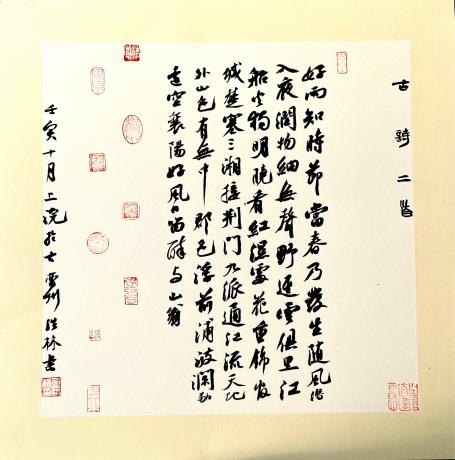 古詩二首
好雨知時節當春乃發生随風潜
入夜潤物細無聲野逕雲俱黑江
船火獨明曉看紅濕處花重錦官
城楚塞三湘接荆門九派通江流天地
外山色有無中郡邑浮前浦波瀾動
遠空襄陽好風日留醉与山翁
壬寅十月上浣於古雷州林書